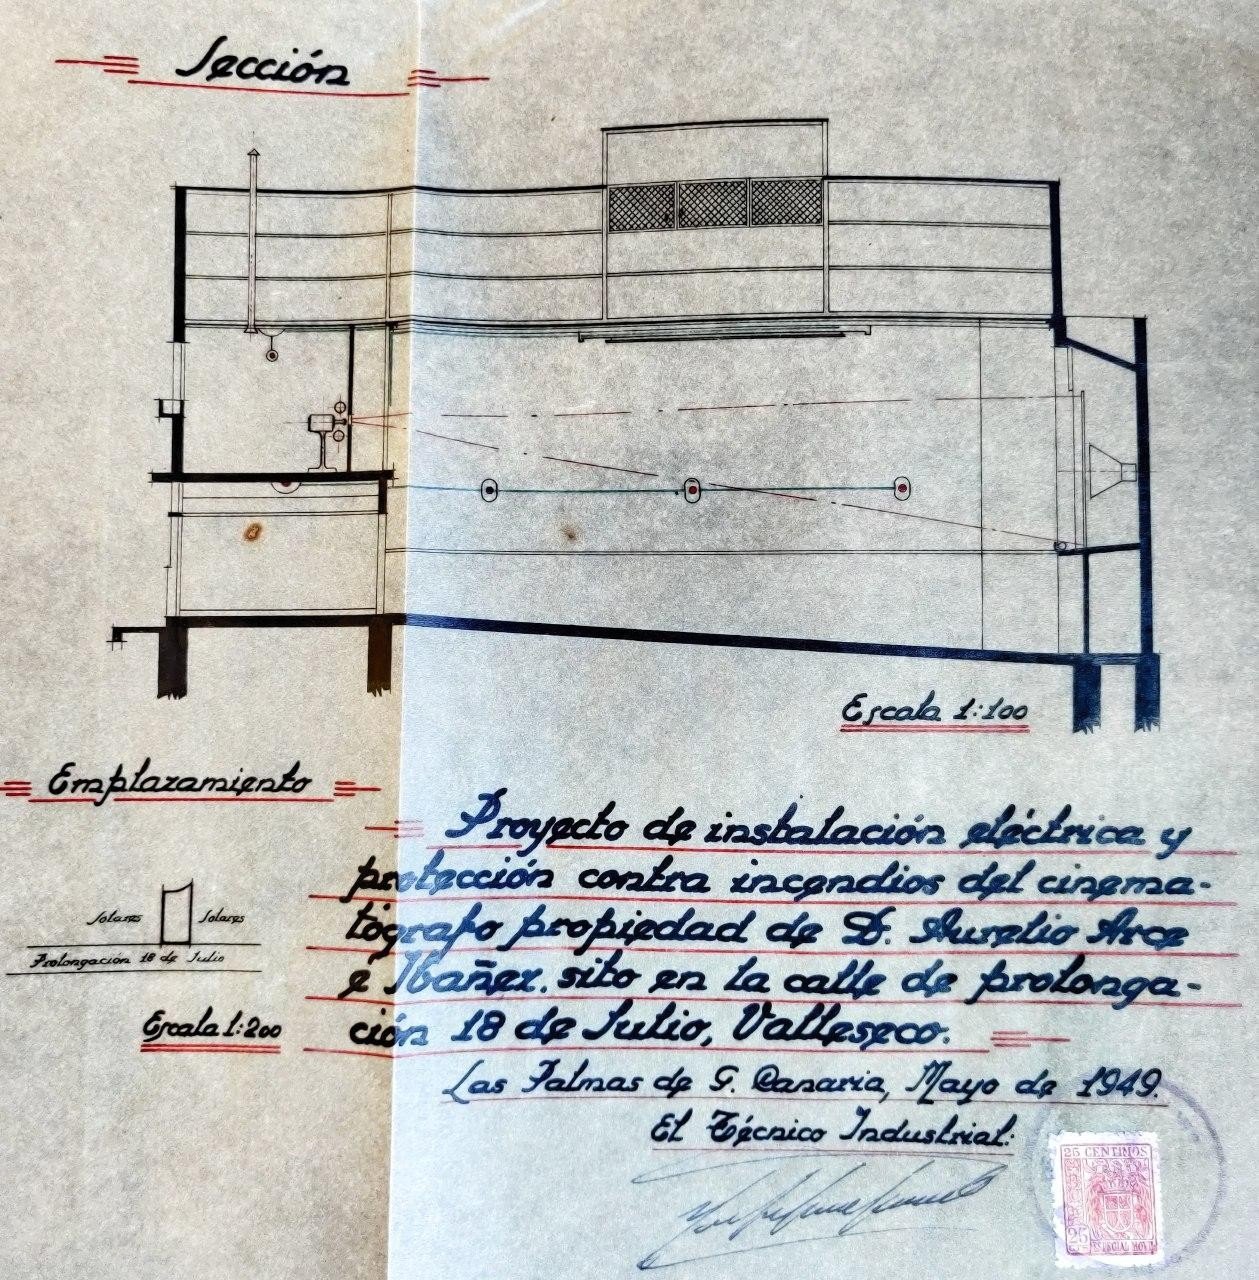 Sección
Escala 1:100
Emplazamiento
Solares
Solares
Prolongación 18 de Julio
Escala 1:200
Proyecto de instalación eléctrica y
protección contra incendios del cinema-
tógrafo propiedad de D. Aurelio Arce
é Ibañez, sito en la calle de prolonga-
ción 18 de Julio, Valleseco.
Las Palmas de G. Canaria, Mayo de 1949.
El Técnico Industrial:
25 CENTIMOS
25
CTS
ESPECIAL MOVIL